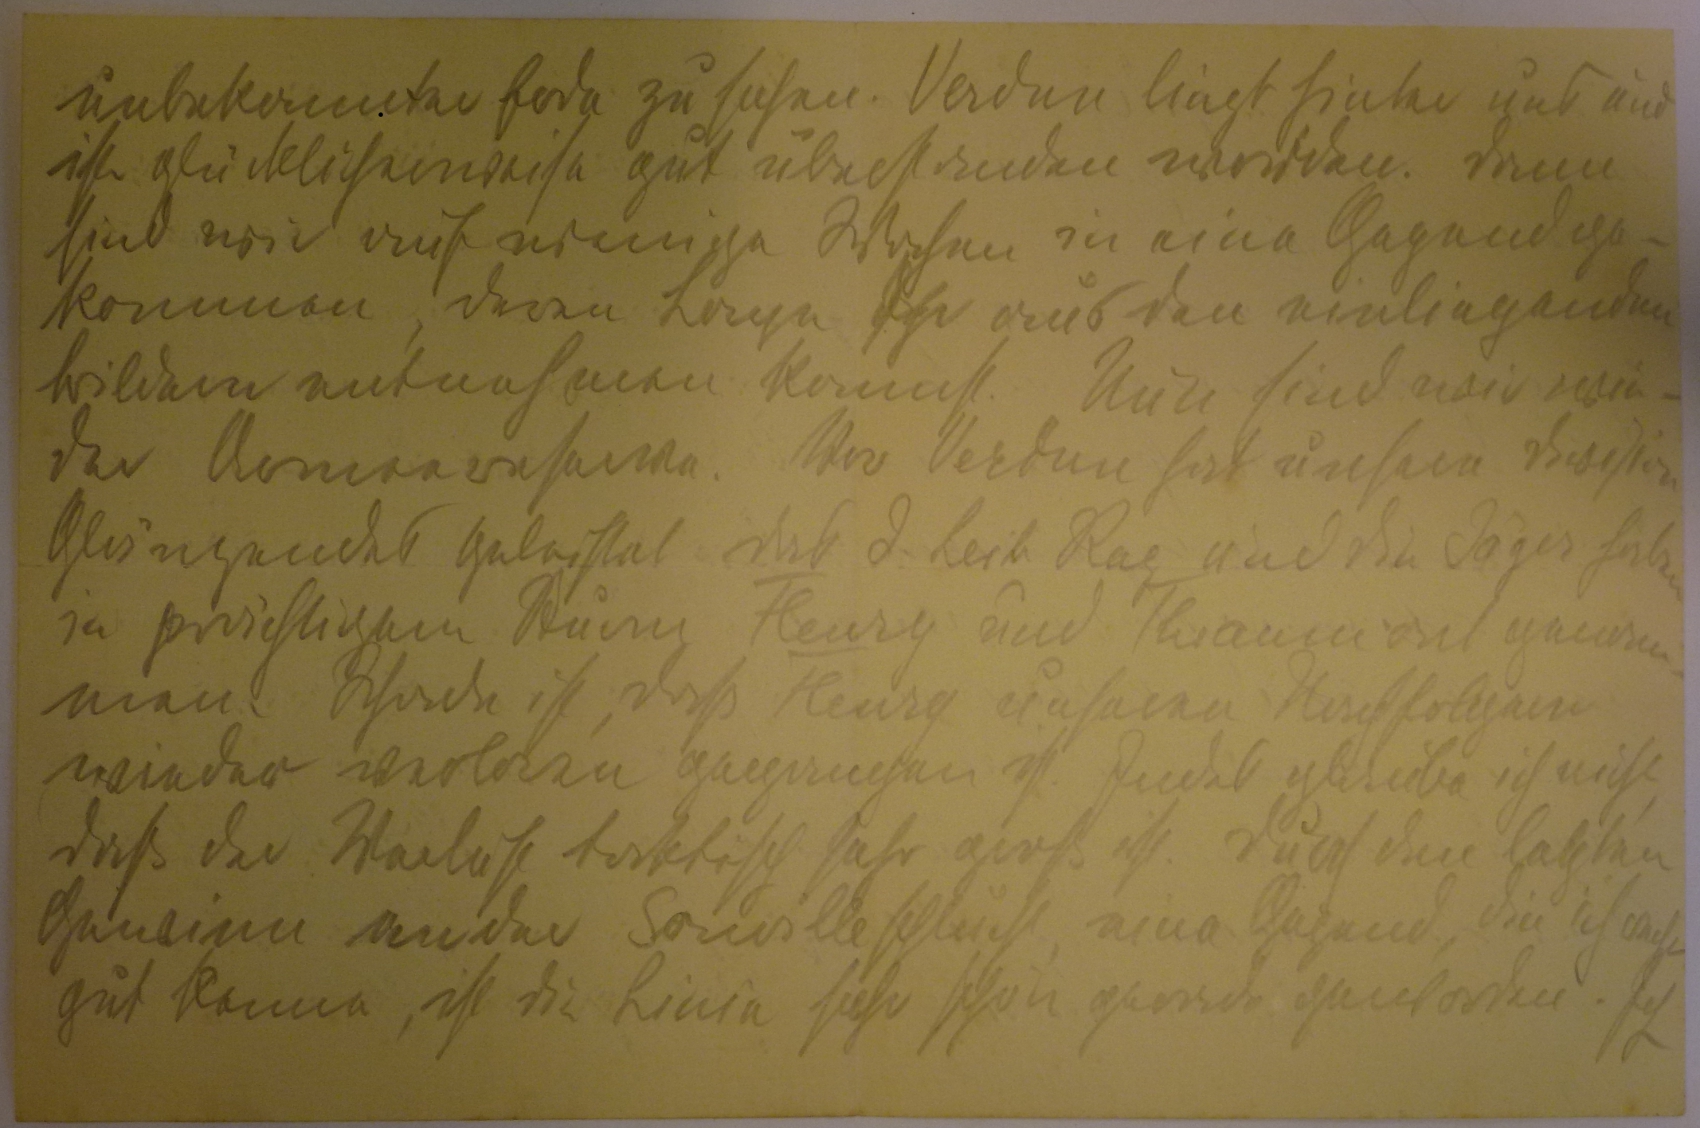 unbekannter Erde zu sehen. Verdun liegt hinter uns und
ist glücklicherweise gut überstanden worden. Dann
sind wir auf wenige Wochen in eine Gegend ge-
kommen, deren Lage Ihr aus den einliegenden
Bildern entnehmen könnt. Nun sind wir wie-
der Armeereserve. Vor Verdun hat unsere Division
Glänzendes geleistet das J. Leib Reg und die Jäger haben
in prächtigem Sturm Fleury und Thiaumont genom-
men. Schade ist, daß Fleury unseren Nachfolgern
wieder verloren gegangen ist. Indes glaube ich nicht,
daß der Verlust taktisch sehr groß ist. Durch den letzten
Gewinn an der Souvilleschlucht, eine Gegend, die ich sehr
gut kenne, ist die Linie sehr schön gerade geworden. Ich